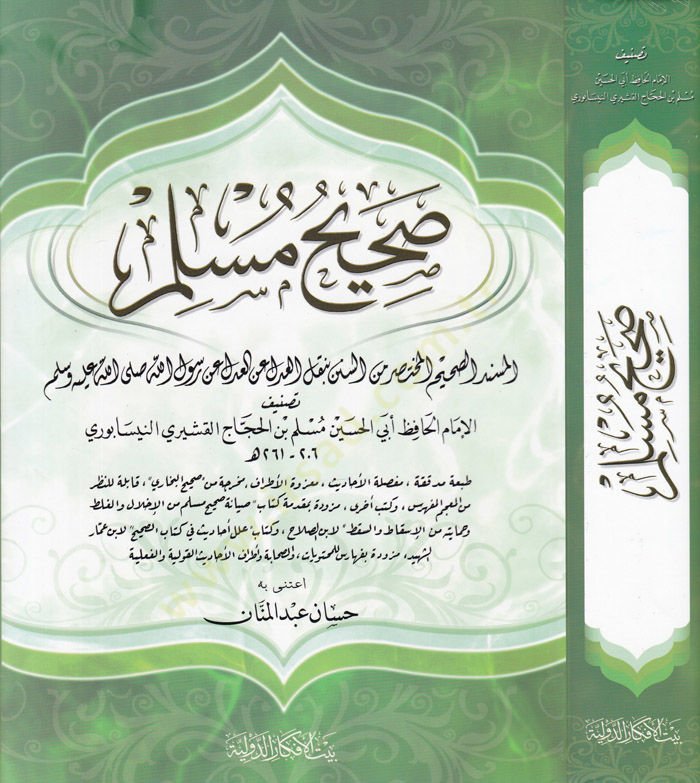 صَحِيحُ مُسْلِم
المسند الصحيح المختصر من السنن بنقل العدل عن العدل عن رسول الله صلى الله عليه وسلم
تصنيف
الإمام الحافظ أبي الحسين مسلم بن الحجاج القشيري النيسابوري
٢٠٦ - ٢٦١ هـ
طبعة مدققة، مفصلة الأحاديث، معزوة الأطراف، مخرجة من "صحيح البخاري"، قابلة للنظر
من المعجم المفهرس، وكتب أخرى، مزودة بمقدمة كتاب "صيانة صحيح مسلم من الإخلال والغلط
وحمايته من الإسقاط والسقط" لابن الصلاح، وكتاب "علل أحاديث في كتاب الصحيح" لابن عمار
الشهيد، مزودة بفهارس للمحتويات، والصحابة وأطراف الأحاديث القولية والفعلية
اعتنى به
حسان عبد المنان
بيت الأفكار الدولية
تصنيف
الإمام الحافظ أبي الحسين
مسلم بن الحجاج القشيري النيسابوري
صَحِيحُ مُسْلِم
بيت الأفكار الدولية